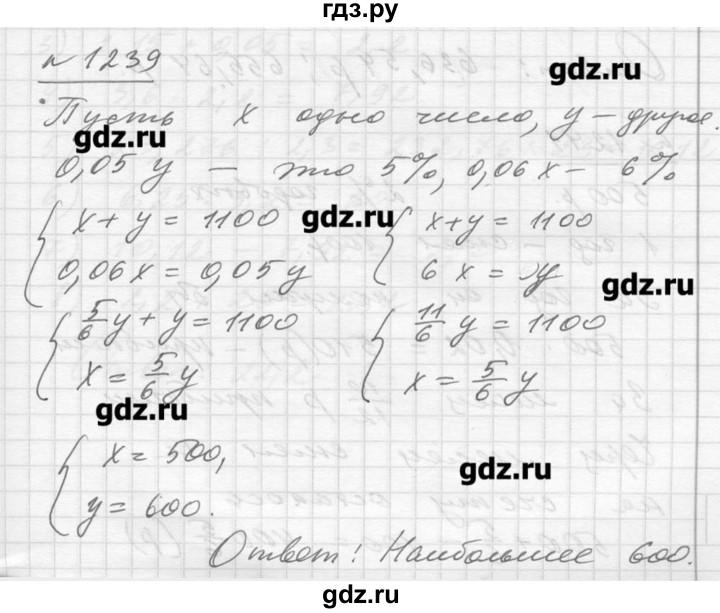 гдз.ру
№ 1239
gdz.ru
Пусть x одно число, y – другое.
gdz.ru
0,05 y – это 5%, 0,06 x – 6%
{ x + y = 1100 { x + y = 1100
gdz.ru
{ 0,06 x = 0,05 y { 6 x = 5y
gdz.ru
{ 5/6 y + y = 1100 { 11/6 y = 1100
{ x = 5/6 y { x = 5/6 y
gdz.ru
{ x = 500,
gdz.ru
{ y = 600.
Ответ: Наибольшее 600.
gdz.ru